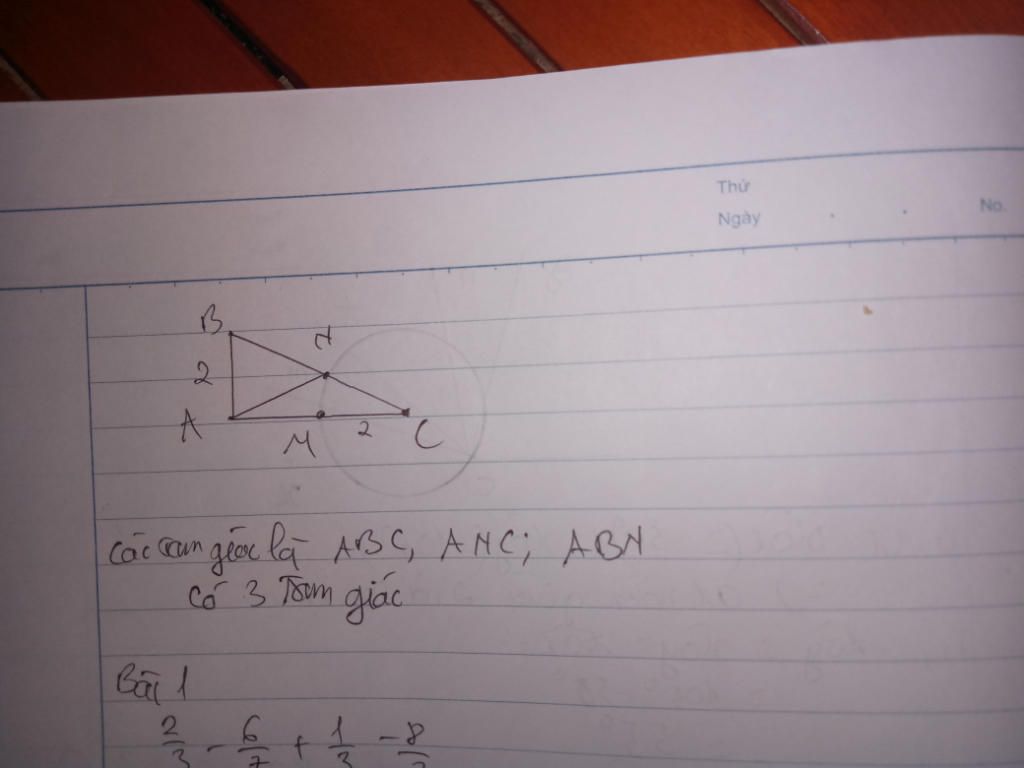 Thứ
Ngày . . No.
B
N
2
A
M 2 C
Các tam giác là ABC, ANC; ABN
Có 3 Tam giác
Bài 1
2/3 - 6/7 + 1/3 - 8